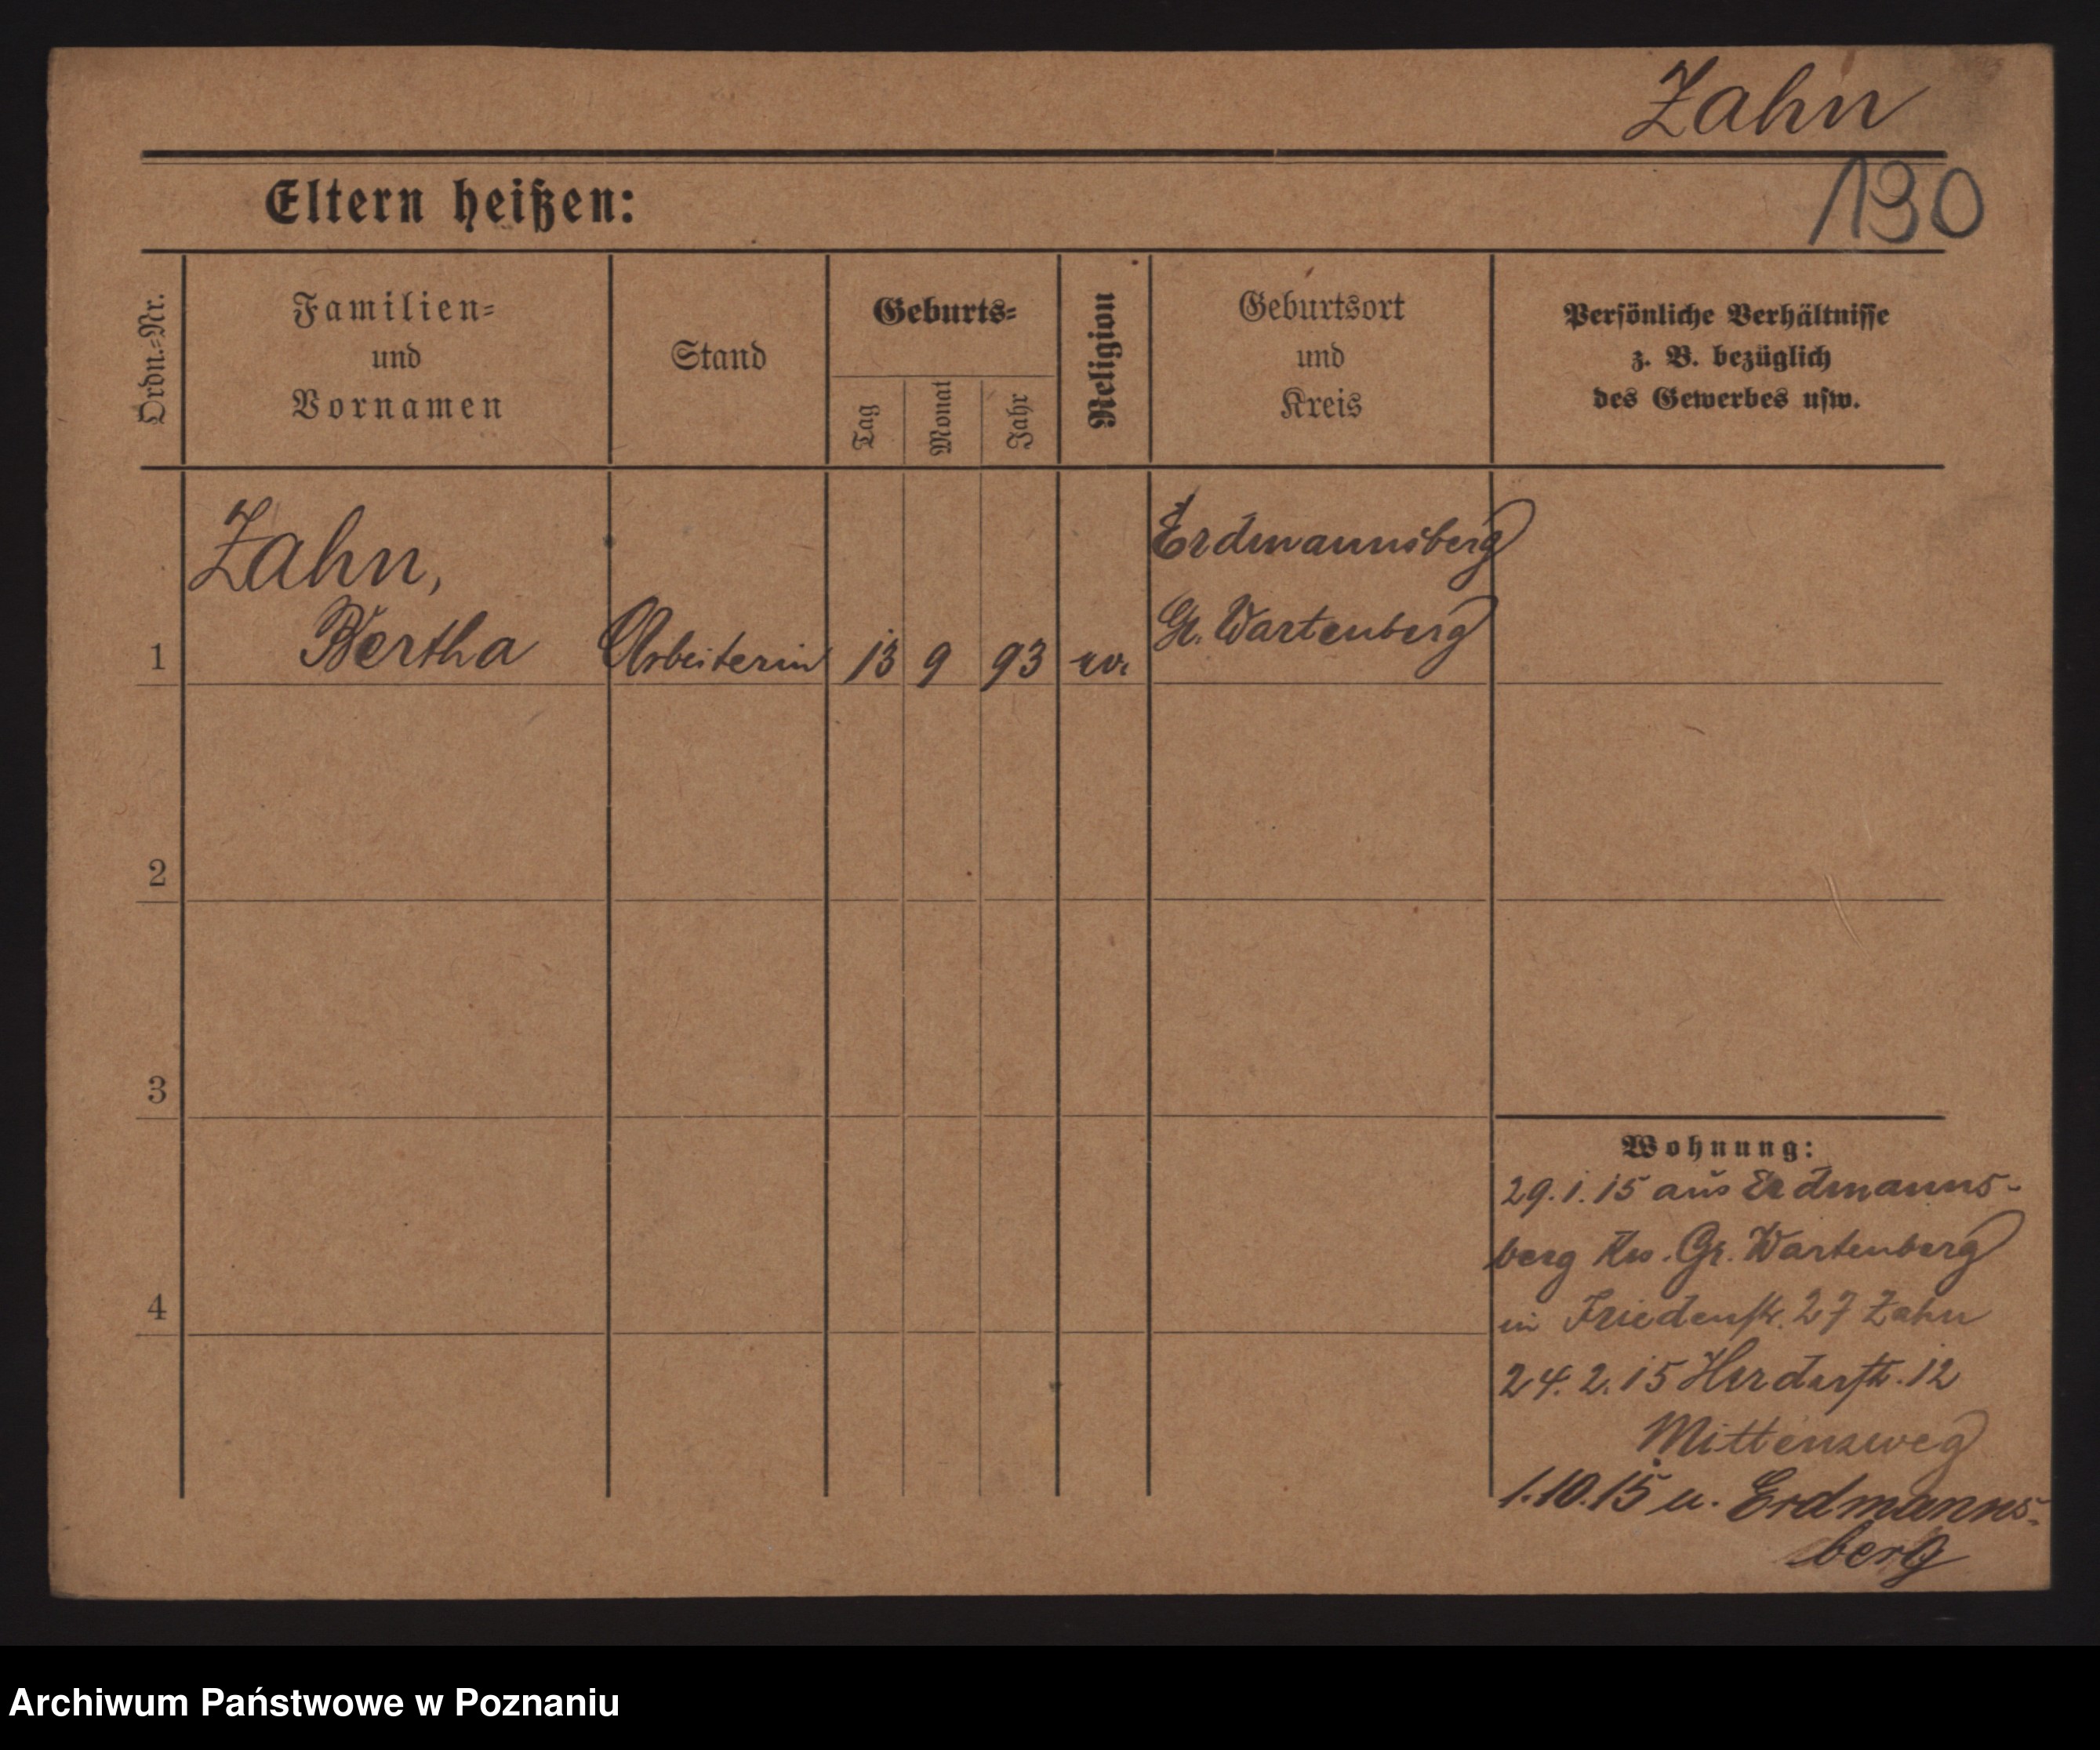 Zahn
130
Eltern heißen:
Ordn.-Nr.
Familien-
und
Vornamen
Stand
Geburts-
Tag
Monat
Jahr
Religion
Geburtsort
und
Kreis
Persönliche Verhältnisse
z. B. bezüglich
des Gewerbes usw.
1
Zahn,
Bertha
Arbeiterin
13
9
93
ev.
Erdmannsberg
Gr. Wartenberg
2
3
4
Wohnung:
29.1.15 aus Erdmanns-
berg Krs. Gr. Wartenberg
in Friedenstr. 27 Zahn
24.2.15 Herderstr. 12
Mittenzweg
1.10.15 u. Erdmanns-
berg
Archiwum Państwowe w Poznaniu